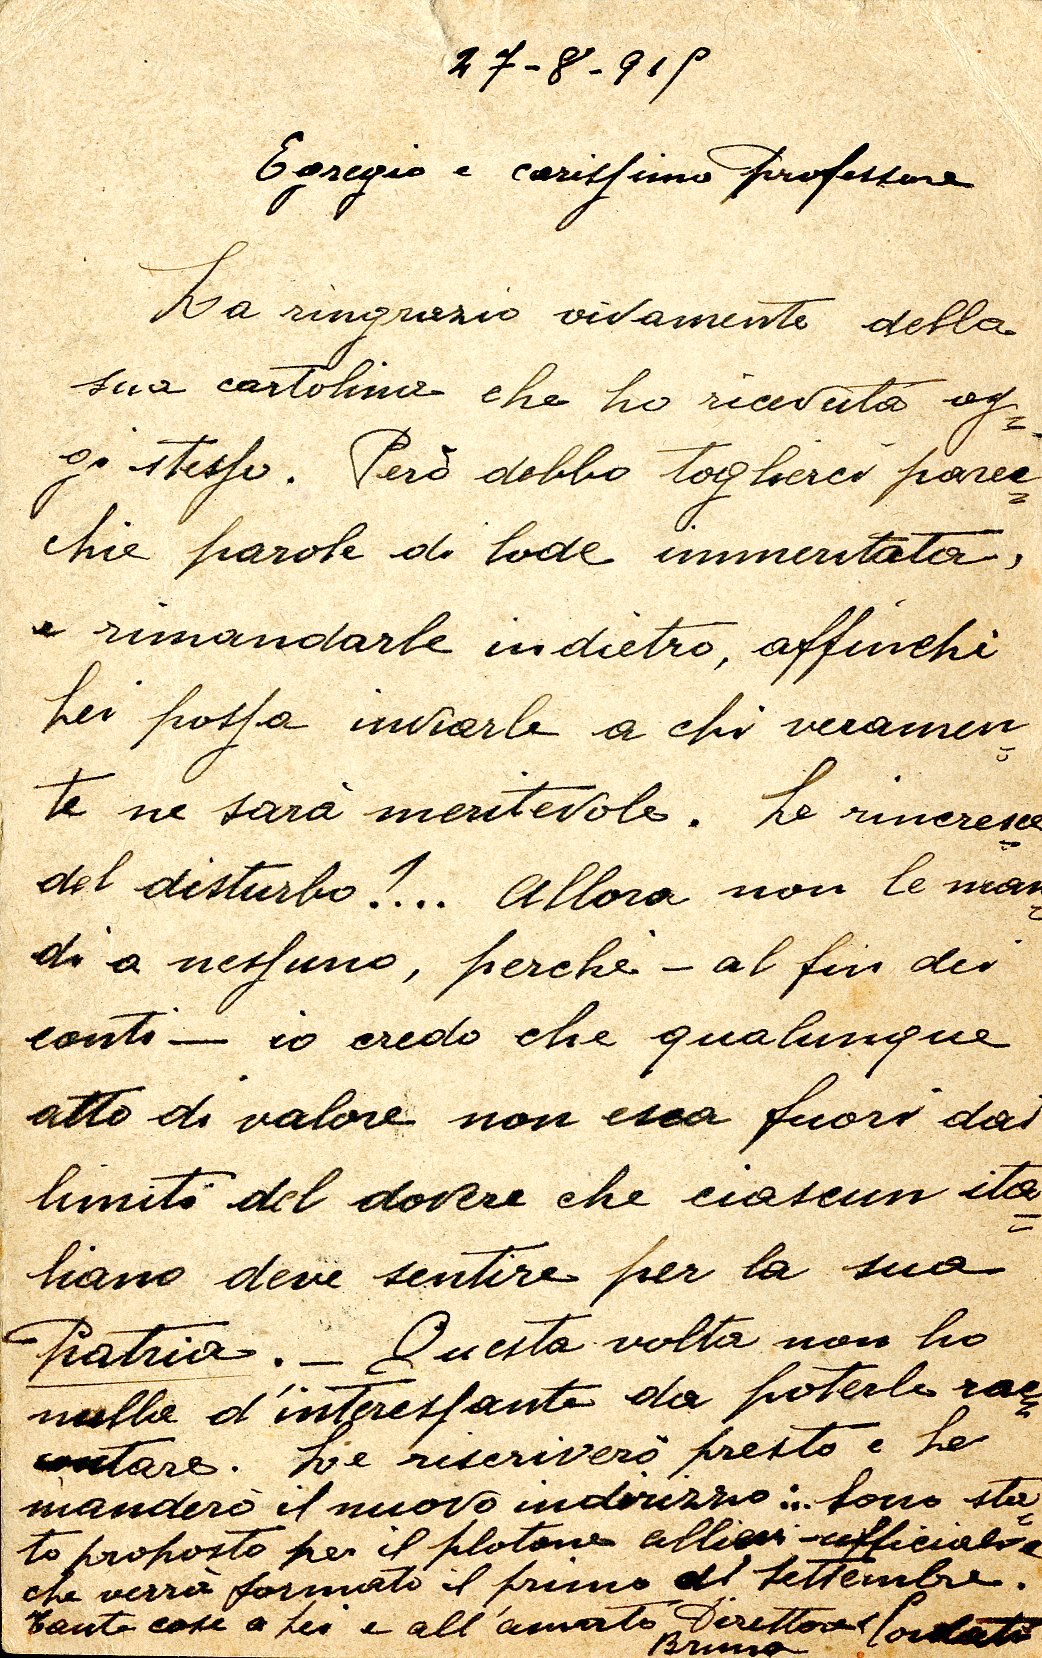 27-8-915
Egregio e carissimo professore
La ringrazio vivamente della
sua cartolina che ho ricevuta og=
gi stesso. Però debbo toglierci parec=
chie parole di lode immeritata,
e rimandarle indietro, affinchè
Lei possa inviarle a chi veramen=
te ne sarà meritevole. Le rincresce
del disturbo!... Allora non le man=
di a nessuno, perchè - al fin dei
conti - io credo che qualunque
atto di valore non esca fuori dai
limiti del dovere che ciascun ita=
liano deve sentire per la sua
Patria. - Questa volta non ho
nulla d'interessante da poterle rac=
contare. Le riscriverò presto e Le
manderò il nuovo indirizzo:.. Sono sta=
to proposto per il plotone allievi-ufficiali
che verrà formato il primo di settembre.
Tante cose a Lei e all'amato Direttore
Bruno